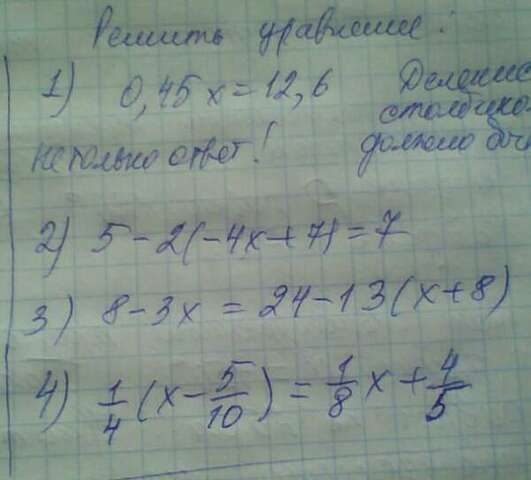 Решить уравнение:
1) 0,45x=12,6 Деление
столбико
не только ответ! должно быт
2) 5-2(-4x+7)=7
3) 8-3x=24-13(x+8)
4) 1/4(x-5/10)=1/8x+4/5